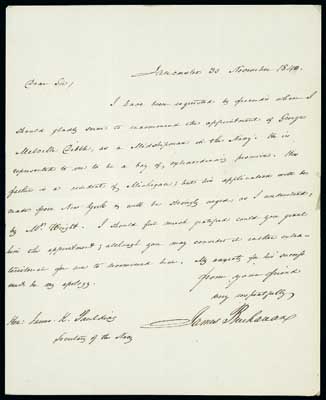 Lancaster 30 November 1840.
Dear Sir,
I have been requested by friends whom I
should gladly serve to recommend the appointment of George
Melville as a Midshipman in the Navy. He is
represented to me to be a boy of extraordinary promise. His
father is a resident of Michigan; but his application will be
made from New York & will be strongly urged, as I understand,
by Mr. Wright. I should feel much gratified could you grant
him the appointment; although you may consider it rather extra-
territorial for me to recommend him. My anxiety for his success
must be my apology.
from your friend
very respectfully
James Buchanan
Hon: James K. Paulding
Secretary of the Navy